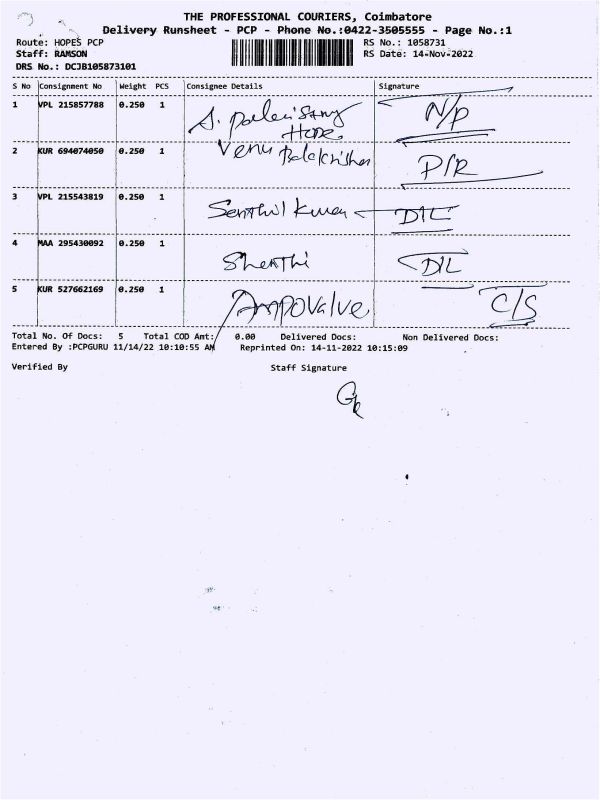 THE PROFESSIONAL COURIERS, Coimbatore
Delivery Runsheet - PCP - Phone No.:0422-3505555 - Page No.:1
Route: HOPES PCP
RS No.: 1058731
Staff: RAMSON
RS Date: 14-Nov-2022
DRS No.: DCJB105873101
S No Consignment No Weight PCS Consignee Details Signature
1 VPL 215857788 0.250 1 N/P
2 KUR 694074050 0.250 1 Venu Balakrishnan P/R
3 VPL 215543819 0.250 1 Senthil Kumar D/L
4 MAA 295430092 0.250 1 D/L
5 KUR 527662169 0.250 1 Ampo Valve C/S
Total No. Of Docs: 5 Total COD Amt: 0.00 Delivered Docs: Non Delivered Docs:
Entered By :PCPGURU 11/14/22 10:10:55 AM Reprinted On: 14-11-2022 10:15:09
Verified By Staff Signature